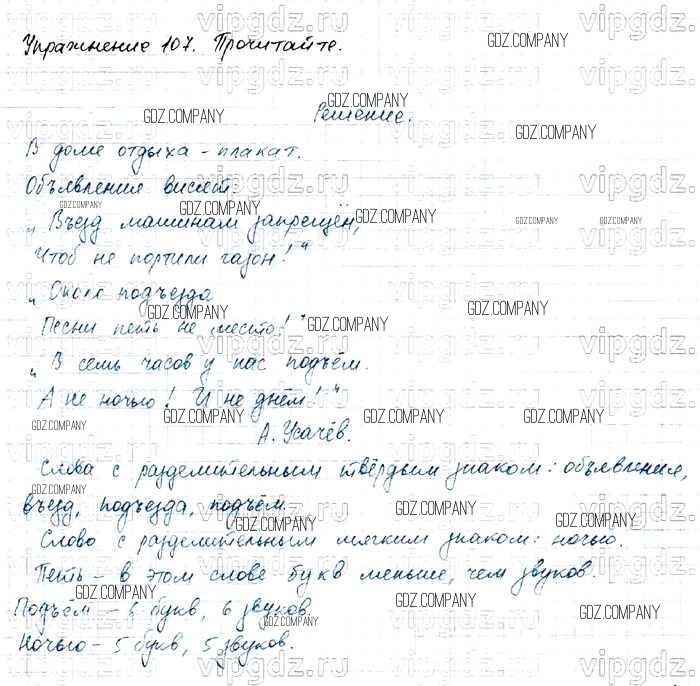 Упражнение 107. Прочитайте.
Решение.
В доме отдыха - плакат.
Объявления висят:
„Въезд машинам запрещён,
Чтоб не портили газон!“
„Около подъезда
Песни петь не место!“
„В семь часов у нас подъём.
А не ночью! И не днём!“
А. Усачёв.
Слова с разделительным твёрдым знаком: объявления,
въезд, подъезда, подъём.
Слово с разделительным мягким знаком: ночью.
Петь - в этом слове букв меньше, чем звуков.
Подъём - 6 букв, 6 звуков.
Ночью - 5 букв, 5 звуков.